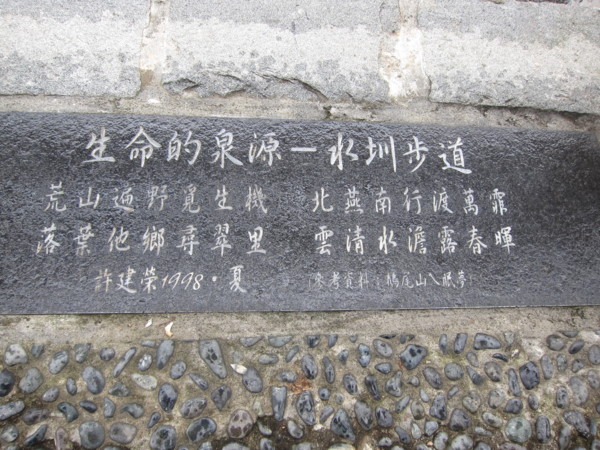 生命的泉源－水圳步道
荒山遍野覓生機 北燕南行渡萬霏
落葉他鄉尋翠里 雲清水澹露春暉
許建榮1998·夏 參考資料